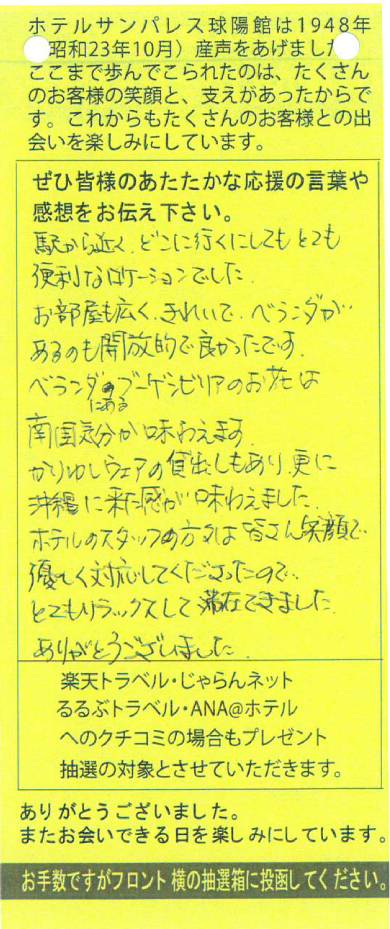 ホテルサンパレス球陽館は1948年
昭和23年10月）産声をあげました
ここまで歩んでこられたのは、たくさん
のお客様の笑顔と、支えがあったからで
す。これからもたくさんのお客様との出
会いを楽しみにしています。
ぜひ皆様のあたたかな応援の言葉や
感想をお伝え下さい。
駅から近く、どこに行くにしてもとても
便利なロケーションでした。
お部屋も広く、きれいで、ベランダが
あるのも開放的で良かったです。
ベランダにあるブーゲンビリアのお花は
南国気分が味わえます。
かりゆしウェアの貸出しもあり、更に
沖縄に来た感が味わえました。
ホテルのスタッフの方々は皆さん笑顔で
優しく対応してくださったので、
とてもリラックスして滞在できました。
ありがとうございました。
楽天トラベル・じゃらんネット
るるぶトラベル・ANA@ホテル
へのクチコミの場合もプレゼント
抽選の対象とさせていただきます。
ありがとうございました。
またお会いできる日を楽しみにしています。
お手数ですがフロント横の抽選箱に投函してください。